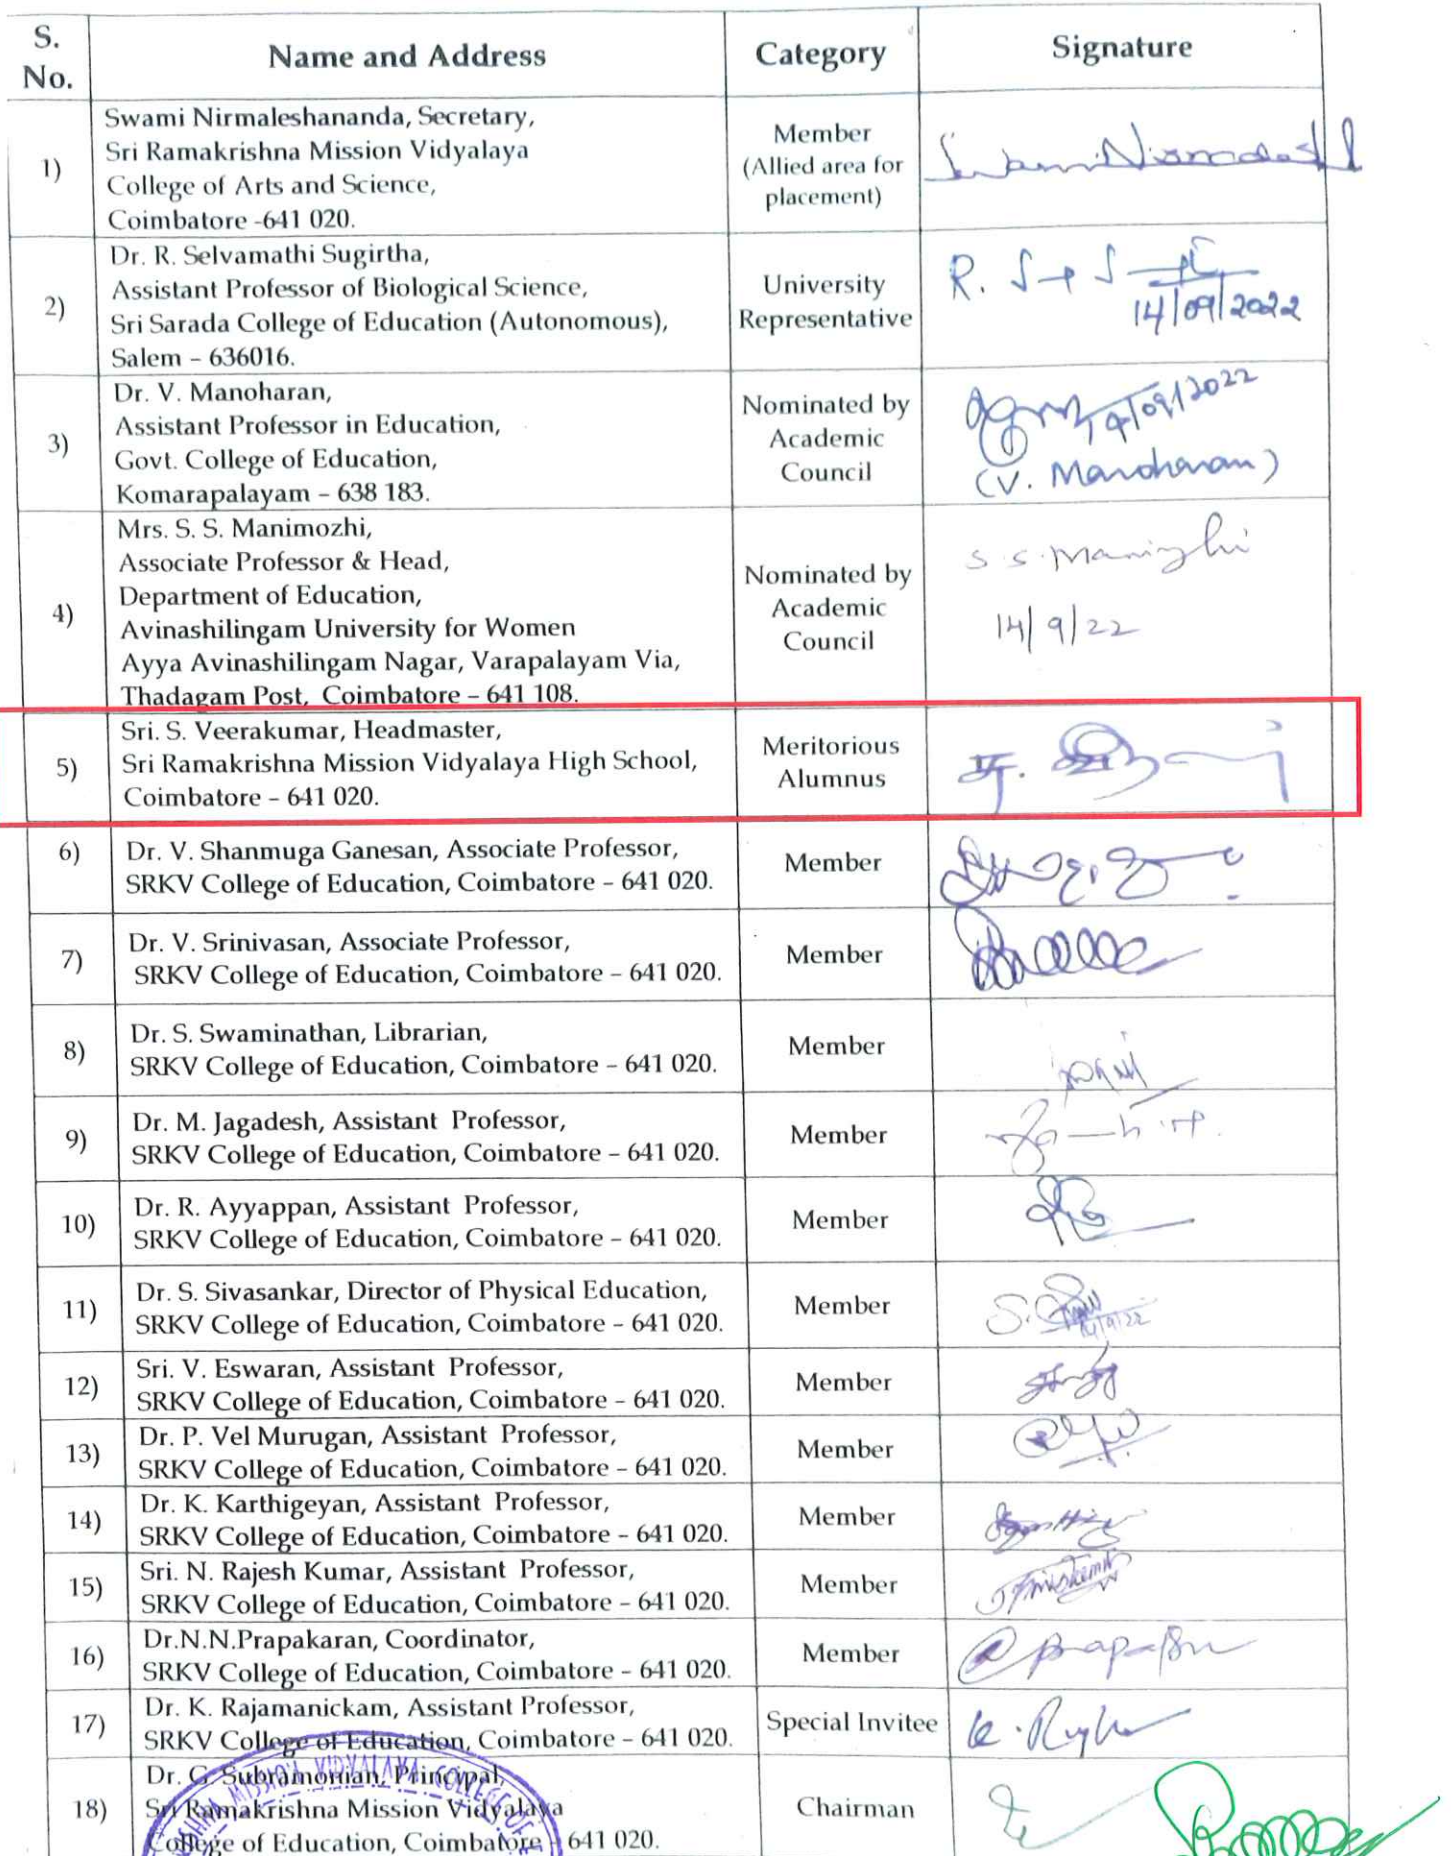 S. No.
Name and Address
Category
Signature
1)
Swami Nirmaleshananda, Secretary,
Sri Ramakrishna Mission Vidyalaya
College of Arts and Science,
Coimbatore -641 020.
Member
(Allied area for
placement)
2)
Dr. R. Selvamathi Sugirtha,
Assistant Professor of Biological Science,
Sri Sarada College of Education (Autonomous),
Salem – 636016.
University
Representative
R.
14/09/2022
3)
Dr. V. Manoharan,
Assistant Professor in Education,
Govt. College of Education,
Komarapalayam – 638 183.
Nominated by
Academic
Council
14/09/2022
(V. Manoharan)
4)
Mrs. S. S. Manimozhi,
Associate Professor & Head,
Department of Education,
Avinashilingam University for Women
Ayya Avinashilingam Nagar, Varapalayam Via,
Thadagam Post, Coimbatore – 641 108.
Nominated by
Academic
Council
14/9/22
5)
Sri. S. Veerakumar, Headmaster,
Sri Ramakrishna Mission Vidyalaya High School,
Coimbatore – 641 020.
Meritorious
Alumnus
6)
Dr. V. Shanmuga Ganesan, Associate Professor,
SRKV College of Education, Coimbatore – 641 020.
Member
7)
Dr. V. Srinivasan, Associate Professor,
SRKV College of Education, Coimbatore – 641 020.
Member
8)
Dr. S. Swaminathan, Librarian,
SRKV College of Education, Coimbatore – 641 020.
Member
9)
Dr. M. Jagadesh, Assistant Professor,
SRKV College of Education, Coimbatore – 641 020.
Member
10)
Dr. R. Ayyappan, Assistant Professor,
SRKV College of Education, Coimbatore – 641 020.
Member
11)
Dr. S. Sivasankar, Director of Physical Education,
SRKV College of Education, Coimbatore – 641 020.
Member
12)
Sri. V. Eswaran, Assistant Professor,
SRKV College of Education, Coimbatore – 641 020.
Member
13)
Dr. P. Vel Murugan, Assistant Professor,
SRKV College of Education, Coimbatore – 641 020.
Member
14)
Dr. K. Karthigeyan, Assistant Professor,
SRKV College of Education, Coimbatore – 641 020.
Member
15)
Sri. N. Rajesh Kumar, Assistant Professor,
SRKV College of Education, Coimbatore – 641 020.
Member
16)
Dr.N.N.Prapakaran, Coordinator,
SRKV College of Education, Coimbatore – 641 020.
Member
17)
Dr. K. Rajamanickam, Assistant Professor,
SRKV College of Education, Coimbatore – 641 020.
Special Invitee
18)
Dr. G. Subramonian, Principal,
Sri Ramakrishna Mission Vidyalaya
College of Education, Coimbatore – 641 020.
Chairman
MISSION VIDYALAYA COLLEGE OF